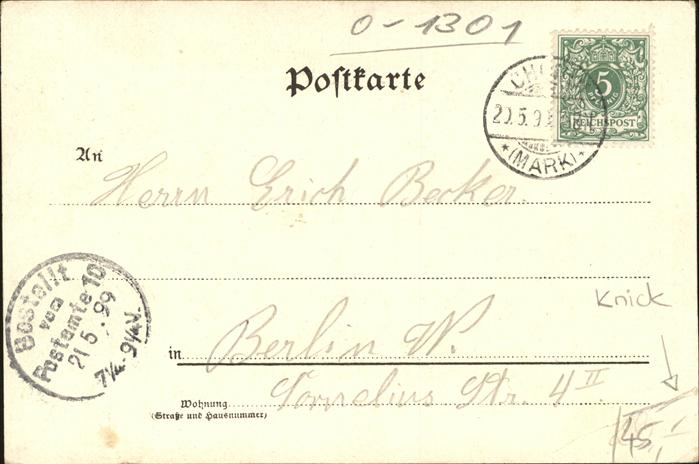 0-1301
Postkarte
5
REICHSPOST
20.5.9
*(MARK)*
An
Herrn Erich Becker.
Bestellt
vom
Postamte 10
21 5. 99
7¼-9¼V.
Knick
in Berlin W.
Wohnung
(Straße und Hausnummer)
Cornelius Str. 4 II
45,-